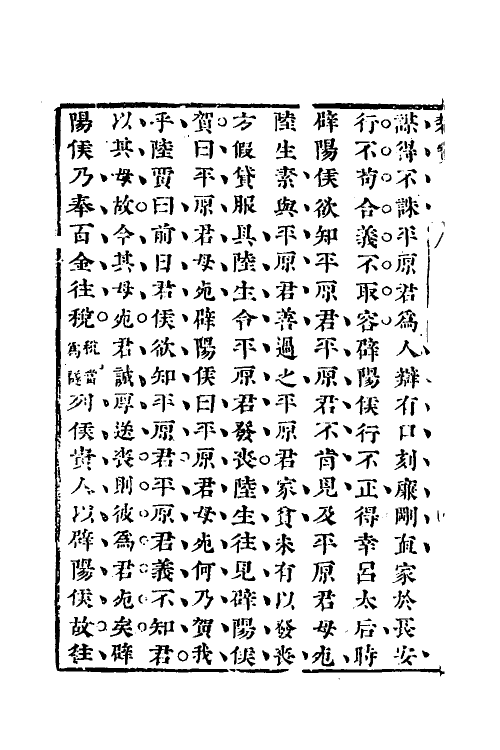 謀得不誅平原君爲人辯有口刻廉剛直家於長安
行不苟合義不取容辟陽侯行不正得幸呂太后時
辟陽侯欲知平原君平原君不肯見及平原君母死
陸生素與平原君善過之平原君家貧未有以發喪
方假貸服具陸生令平原君發喪陸生往見辟陽侯
賀曰平原君母死辟陽侯曰平原君母死何乃賀我
乎陸賈曰前日君侯欲知平原君平原君義不知君
以其母故今其母死君誠厚送喪則彼爲君死矣辟
陽侯乃奉百金往稅稅當爲襚列侯貴人以辟陽侯故往